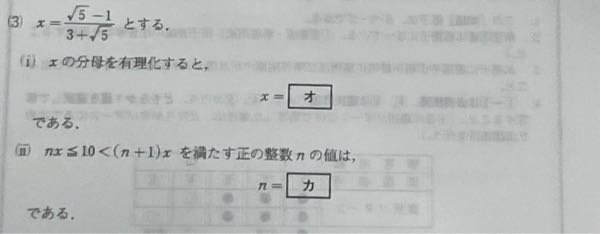 (3) x = (√5 − 1)/(3 + √5) とする.
(i) x の分母を有理化すると,
x = オ
である.
(ii) nx ≦ 10 < (n + 1)x を満たす正の整数 n の値は,
n = カ
である.